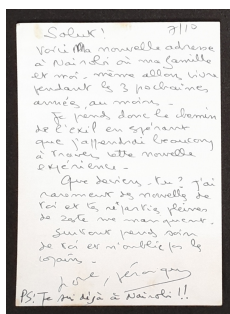 Salut ! 7/10
Voici Ma nouvelle adresse
à Nairobi où ma famille
et moi-même allons vivre
pendant les 3 prochaines
années, au moins.
Je prends donc le chemin
de l'exil en espérant
que j'apprendrai beaucoup
à travers cette nouvelle
expérience.
Que deviens-tu ? j'ai
rarement des nouvelles de
toi et tes reparties
de me manquent.
Surtout prends soin
de toi et n'oublie pas les
copains.
Love,
PS: Je suis déjà à Nairobi !!